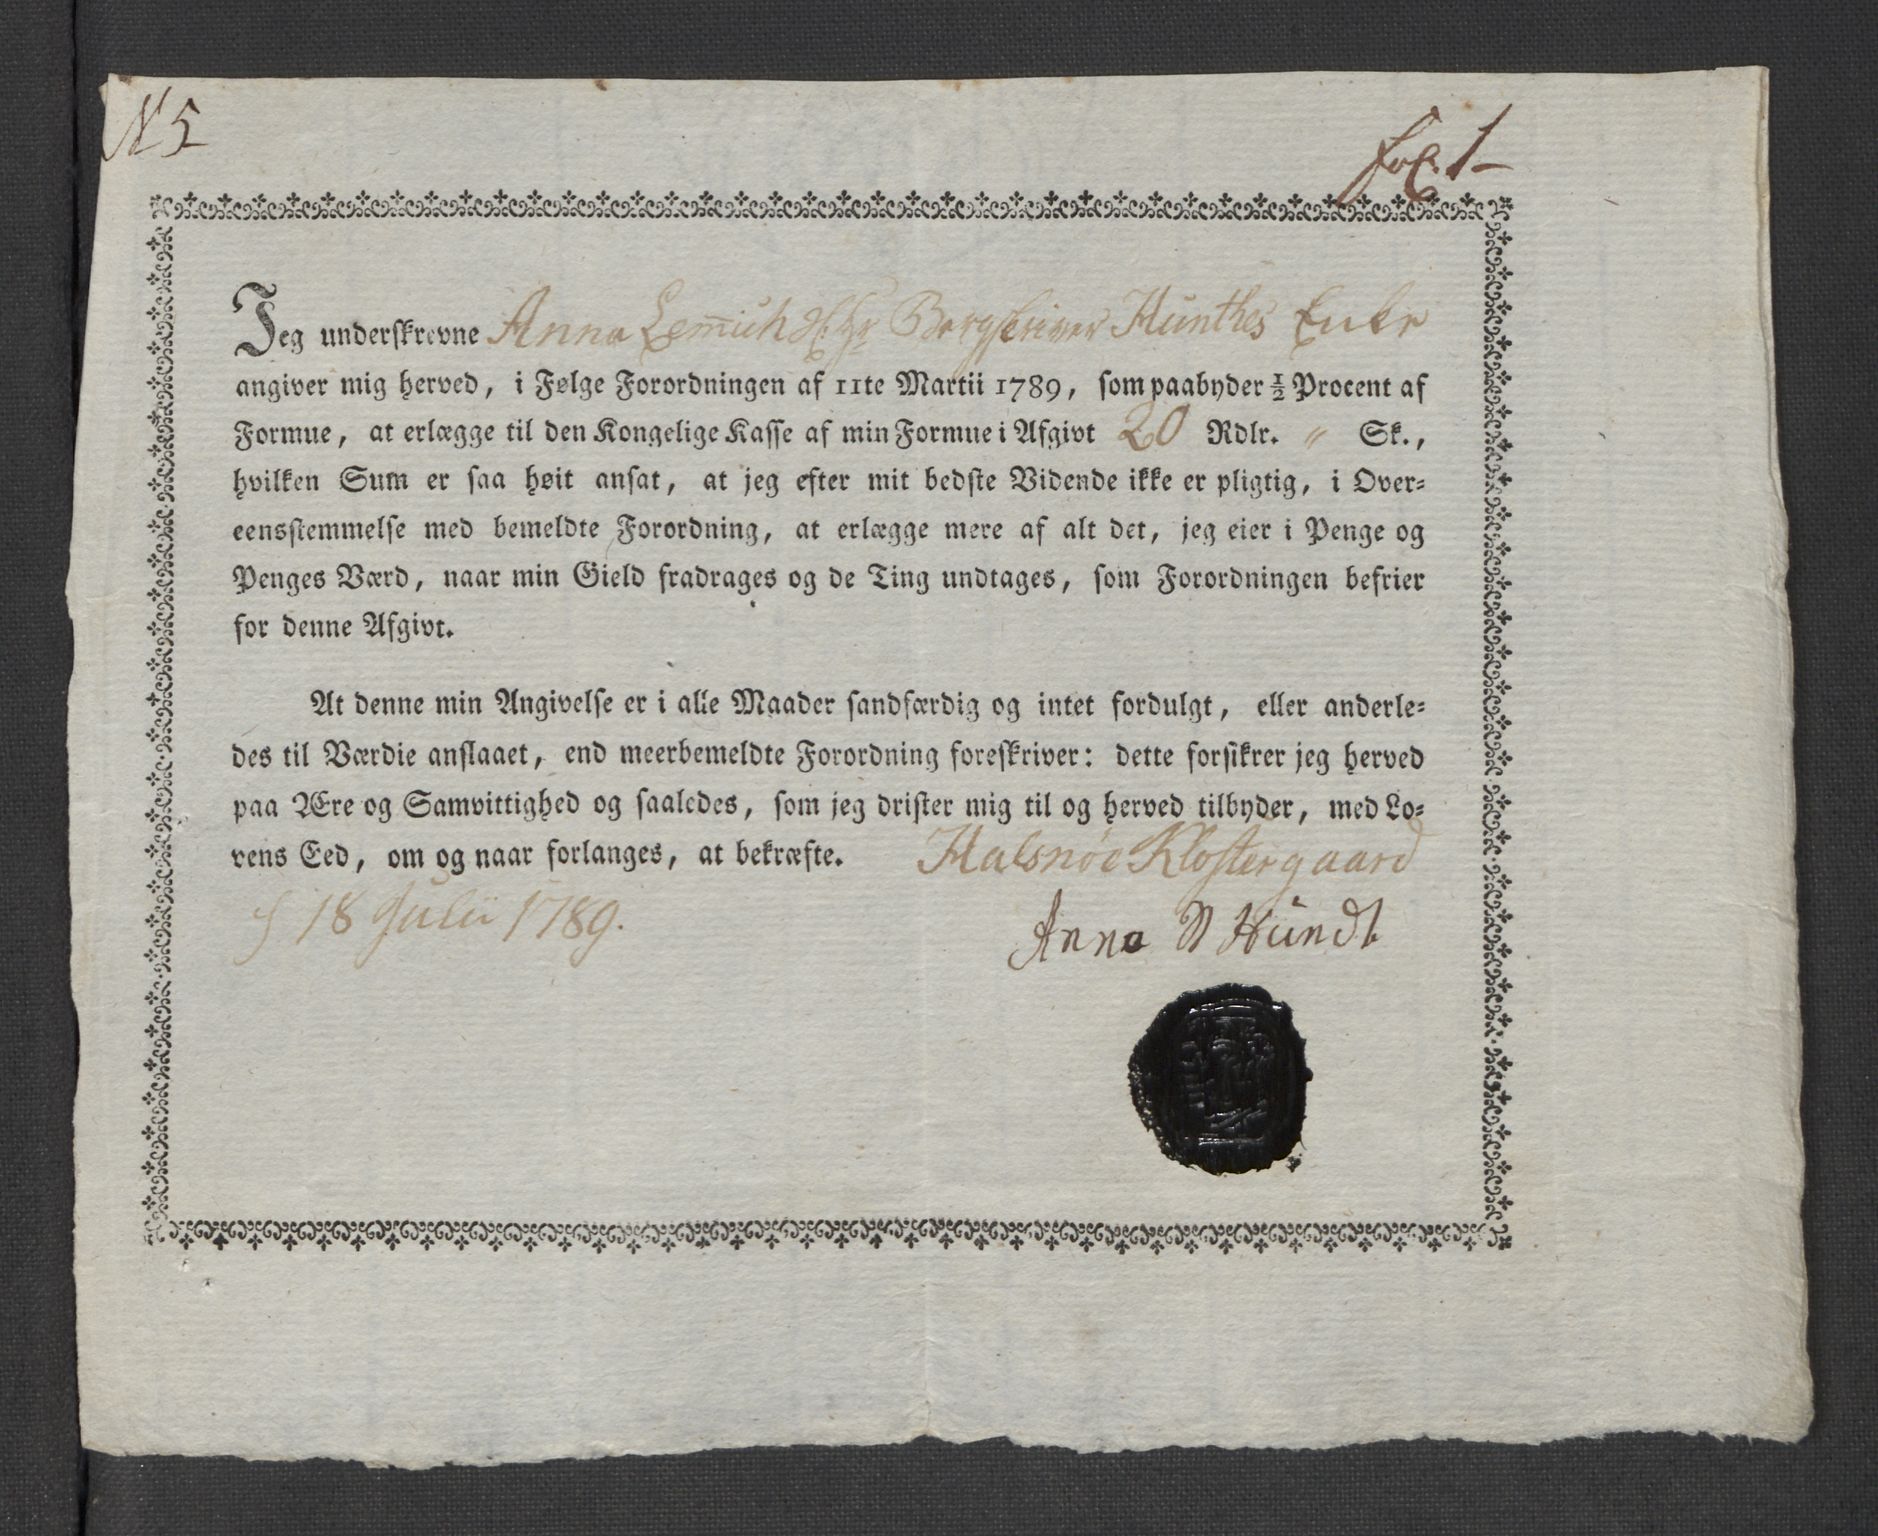 N 5
fol. 1
Jeg underskrevne Anna Lemich Bergskriver Hunthes Enke
angiver mig herved, i Følge Forordningen af 11te Martii 1789, som paabyder ½ Procent af
Formue, at erlægge til den Kongelige Kasse af min Formue i Afgivt 20 Rdlr. " Sk.,
hvilken Sum er saa høit ansat, at jeg efter mit bedste Vidende ikke er pligtig, i Over-
eensstemmelse med bemeldte Forordning, at erlægge mere af alt det, jeg eier i Penge og
Penges Værd, naar min Gield fradrages og de Ting undtages, som Forordningen befrier
for denne Afgivt.
At denne min Angivelse er i alle Maader sandfærdig og intet fordulgt, eller anderle-
des til Værdie anslaaet, end meerbemeldte Forordning foreskriver: dette forsikrer jeg herved
paa Ære og Samvittighed og saaledes, som jeg drister mig til og herved tilbyder, med Lo-
vens Eed, om og naar forlanges, at bekræfte. Halsnöe Klostergaard
18 Julii 1789.
Anna Hundt